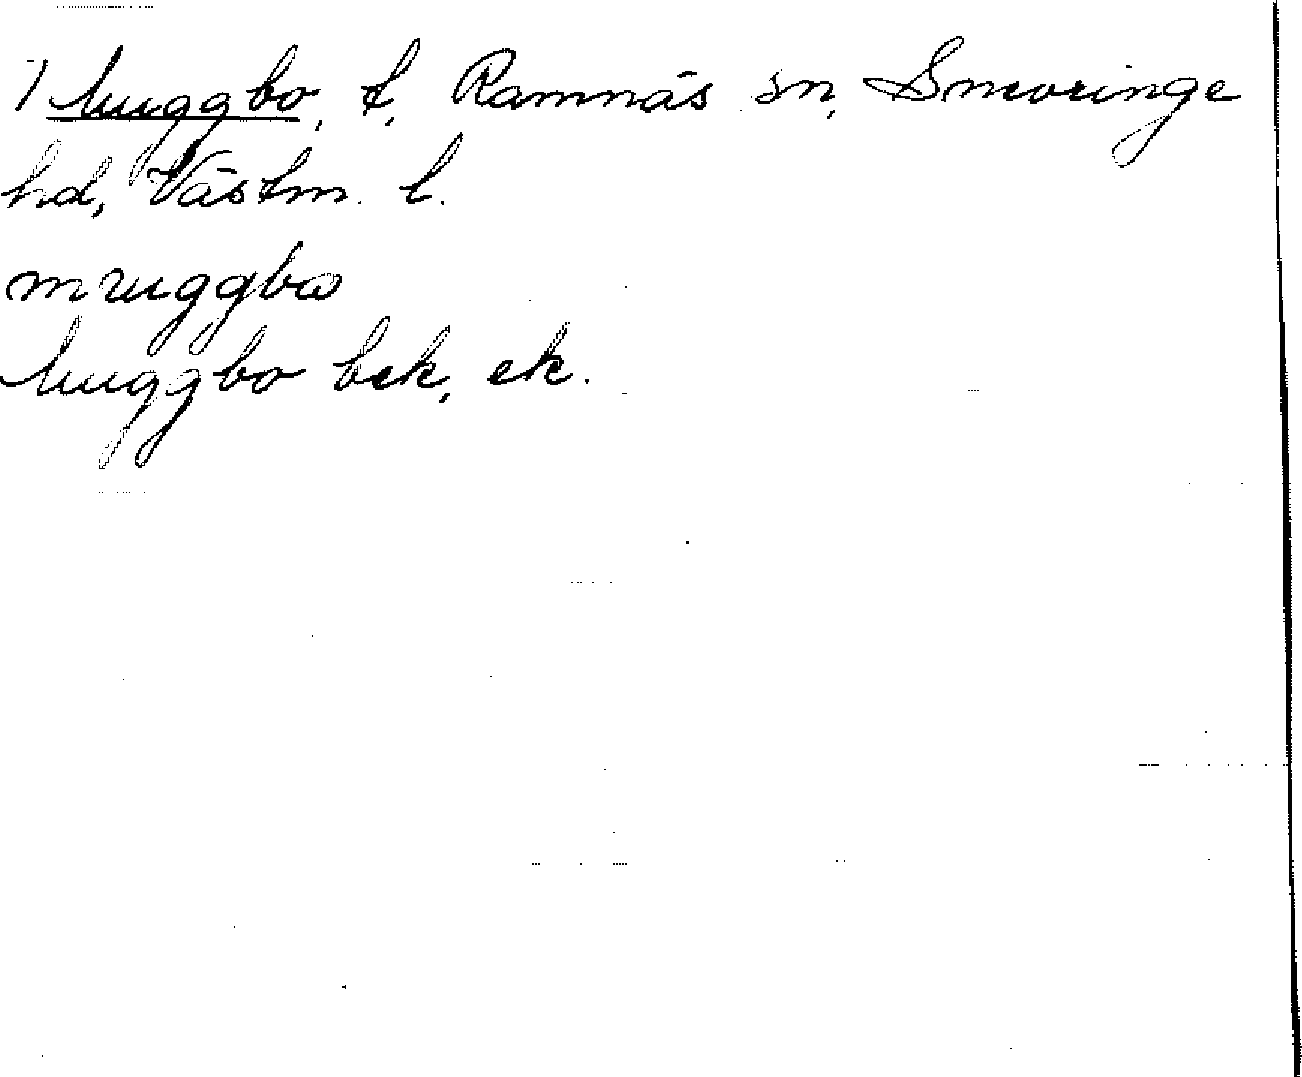 1 Muggbo, t, Ramnäs sn, Snevringe
hd, Västm. l.
mruggbω
Muggbo bek, ek.